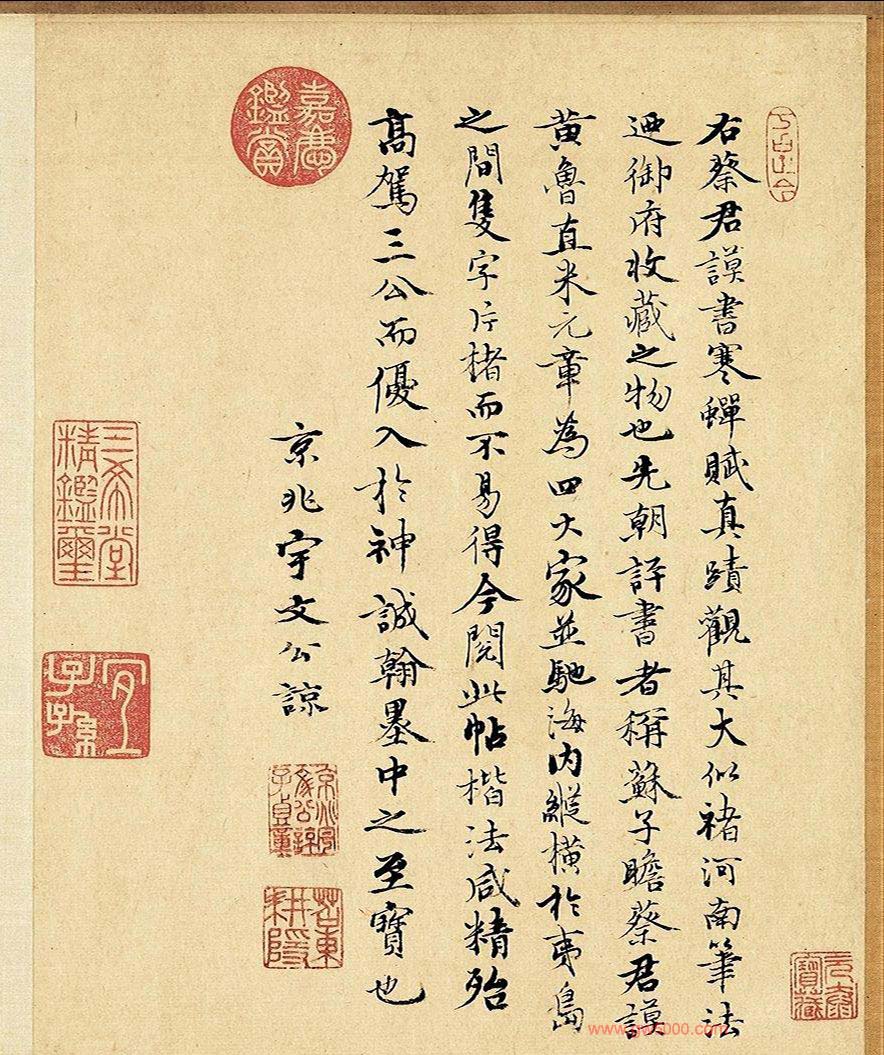 右蔡君謨書寒蟬賦真蹟觀其大似褚河南筆法
迺御府收藏之物也先朝評書者稱蘇子瞻蔡君謨
黃魯直米元章為四大家並馳海內縱橫於夷島
之間隻字片楮而不易得今閱此帖楷法咸精殆
高駕三公而優入於神誠翰墨中之至寶也
京兆宇文公諒
嘉慶鑑賞
苕東耕隱
三希堂精鑑璽
宜子孫